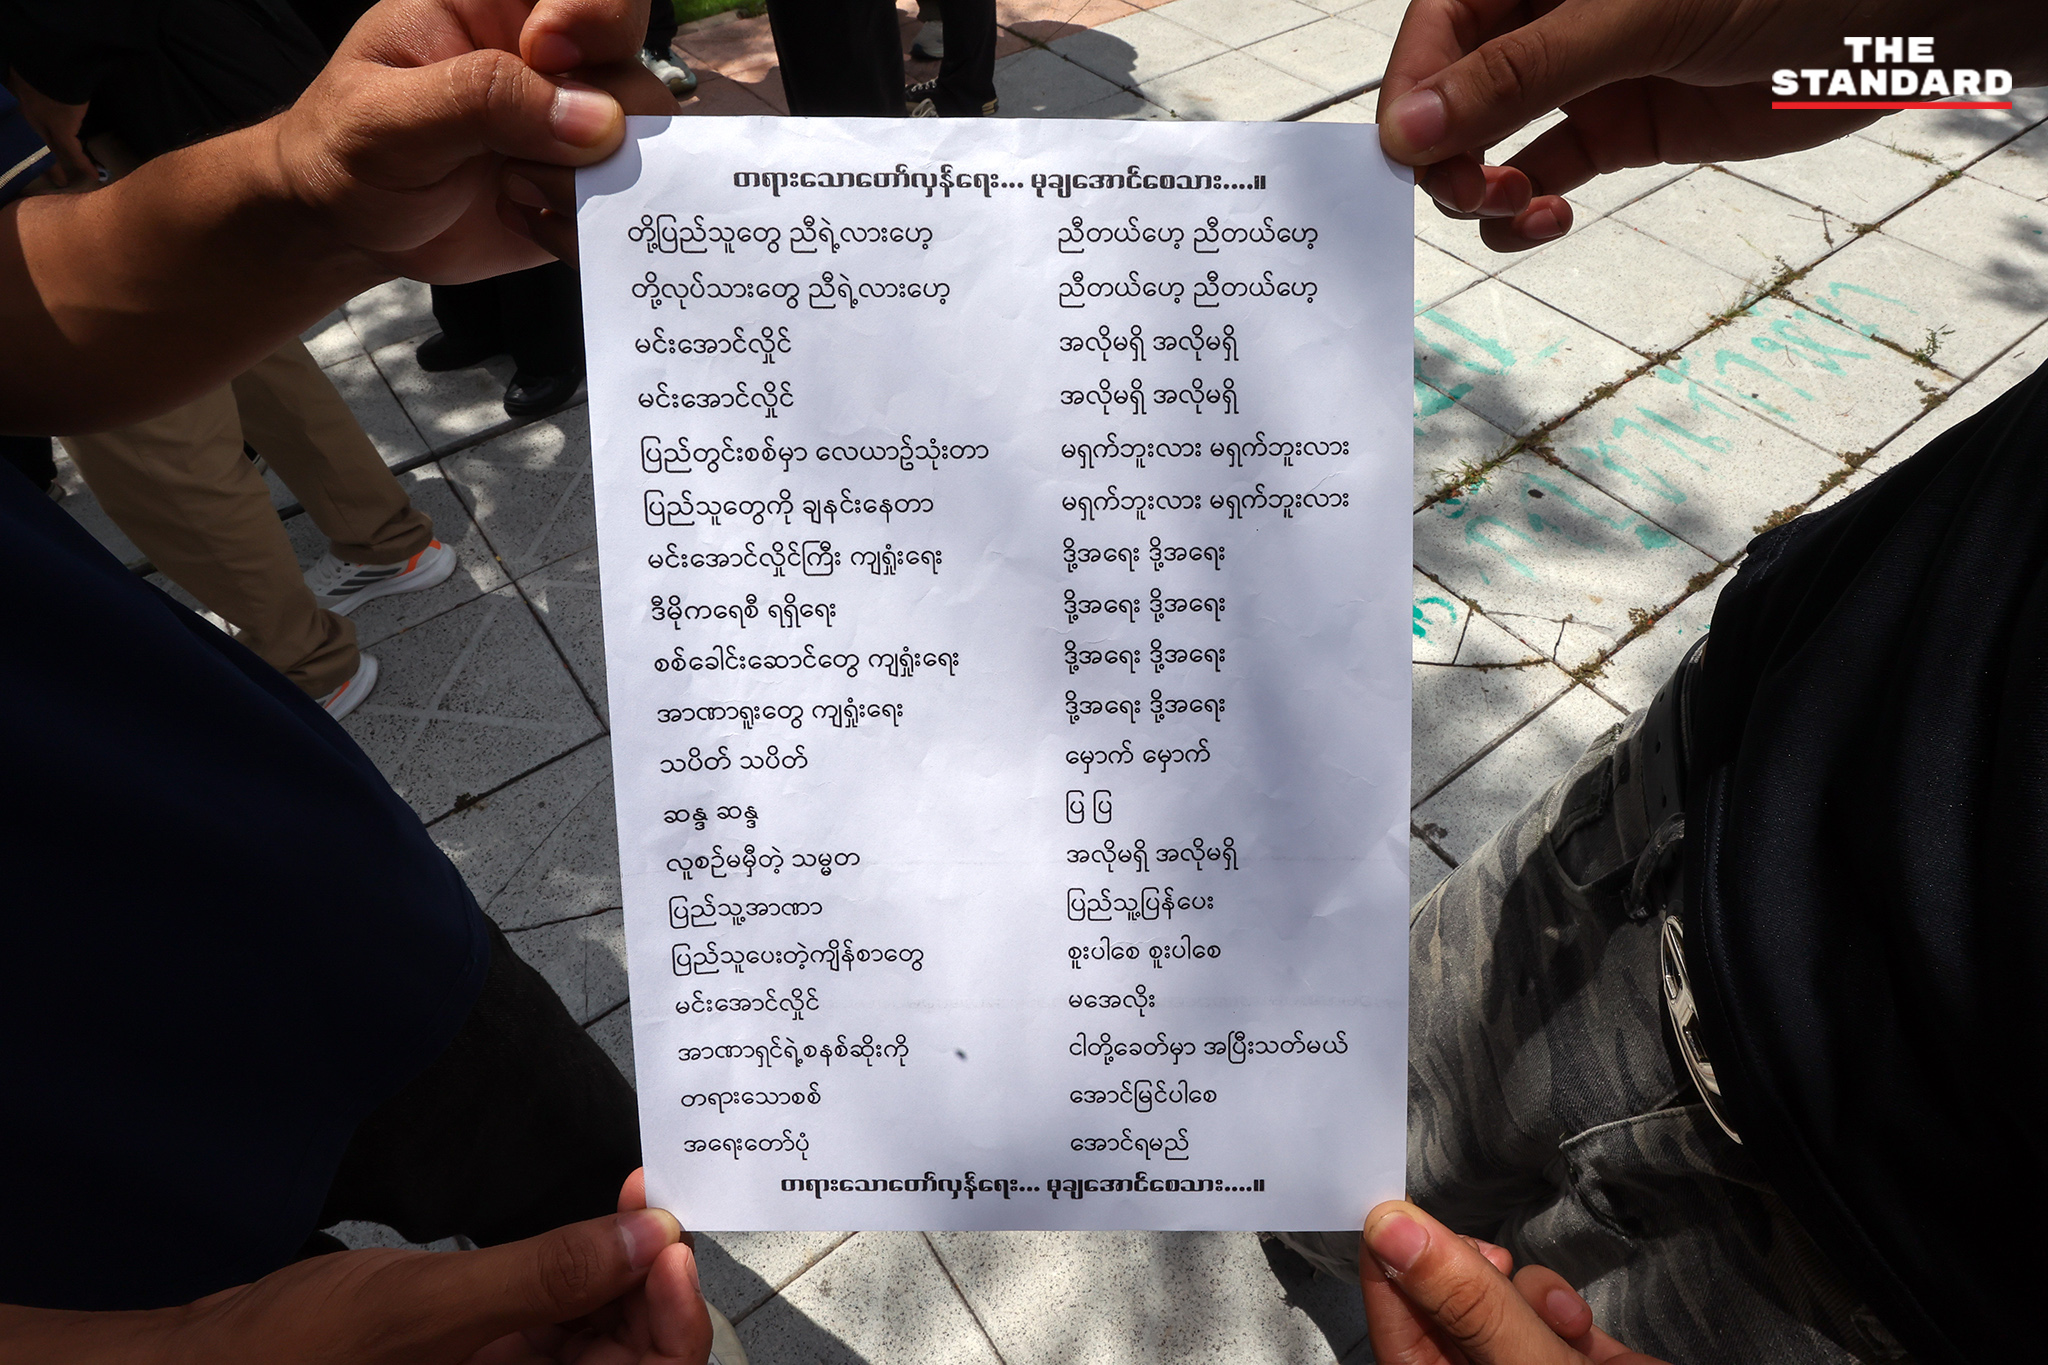 THE
STANDARD
တရားသောတော်လှန်ရေး... မုချအောင်စေသား....။
တို့ပြည်သူတွေ ညီရဲ့လားဟေ့ ညီတယ်ဟေ့ ညီတယ်ဟေ့
တို့လုပ်သားတွေ ညီရဲ့လားဟေ့ ညီတယ်ဟေ့ ညီတယ်ဟေ့
မင်းအောင်လှိုင် အလိုမရှိ အလိုမရှိ
မင်းအောင်လှိုင် အလိုမရှိ အလိုမရှိ
ပြည်တွင်းစစ်မှာ လေယာဥ်သုံးတာ မရှက်ဘူးလား မရှက်ဘူးလား
ပြည်သူတွေကို ချနင်းနေတာ မရှက်ဘူးလား မရှက်ဘူးလား
မင်းအောင်လှိုင်ကြီး ကျရှုံးရေး ဒို့အရေး ဒို့အရေး
ဒီမိုကရေစီ ရရှိရေး ဒို့အရေး ဒို့အရေး
စစ်ခေါင်းဆောင်တွေ ကျရှုံးရေး ဒို့အရေး ဒို့အရေး
အာဏာရူးတွေ ကျရှုံးရေး ဒို့အရေး ဒို့အရေး
သပိတ် သပိတ် မှောက် မှောက်
ဆန္ဒ ဆန္ဒ ပြ ပြ
လူစဉ်မမှီတဲ့ သမ္မတ အလိုမရှိ အလိုမရှိ
ပြည်သူ့အာဏာ ပြည်သူ့ပြန်ပေး
ပြည်သူပေးတဲ့ကျိန်စာတွေ စူးပါစေ စူးပါစေ
မင်းအောင်လှိုင် မအေလိုး
အာဏာရှင်ရဲ့စနစ်ဆိုးကို ငါတို့ခေတ်မှာ အပြီးသတ်မယ်
တရားသောစစ် အောင်မြင်ပါစေ
အရေးတော်ပုံ အောင်ရမည်
တရားသောတော်လှန်ရေး... မုချအောင်စေသား....။